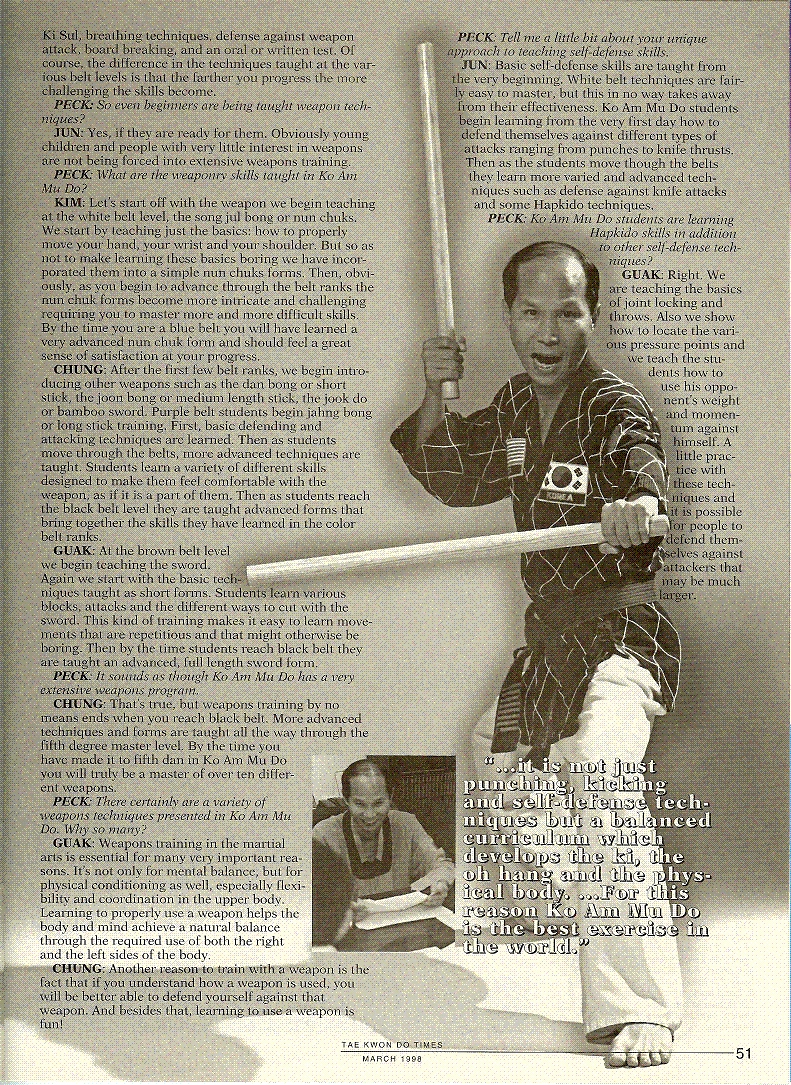 Ki Sul, breathing techniques, defense against weapon
attack, board breaking, and an oral or written test. Of
course, the difference in the techniques taught at the var-
ious belt levels is that the farther you progress the more
challenging the skills become.
PECK: So even beginners are being taught weapon tech-
niques?
JUN: Yes, if they are ready for them. Obviously young
children and people with very little interest in weapons
are not being forced into extensive weapons training.
PECK: What are the weaponry skills taught in Ko Am
Mu Do?
KIM: Let's start off with the weapon we begin teaching
at the white belt level, the song jul bong or nun chuks.
We start by teaching just the basics: how to properly
move your hand, your wrist and your shoulder. But so as
not to make learning these basics boring we have incor-
porated them into a simple nun chuks forms. Then, obvi-
ously, as you begin to advance through the belt ranks the
nun chuk forms become more intricate and challenging
requiring you to master more and more difficult skills.
By the time you are a blue belt you will have learned a
very advanced nun chuk form and should feel a great
sense of satisfaction at your progress.
CHUNG: After the first few belt ranks, we begin intro-
ducing other weapons such as the dan bong or short
stick, the joon bong or medium length stick, the jook do
or bamboo sword. Purple belt students begin jahng bong
or long stick training. First, basic defending and
attacking techniques are learned. Then as students
move through the belts, more advanced techniques are
taught. Students learn a variety of different skills
designed to make them feel comfortable with the
weapon, as if it is a part of them. Then as students reach
the black belt level they are taught advanced forms that
bring together the skills they have learned in the color
belt ranks.
GUAK: At the brown belt level
we begin teaching the sword.
Again we start with the basic tech-
niques taught as short forms. Students learn various
blocks, attacks and the different ways to cut with the
sword. This kind of training makes it easy to learn move-
ments that are repetitious and that might otherwise be
boring. Then by the time students reach black belt they
are taught an advanced, full length sword form.
PECK: It sounds as though Ko Am Mu Do has a very
extensive weapons program.
CHUNG: That's true, but weapons training by no
means ends when you reach black belt. More advanced
techniques and forms are taught all the way through the
fifth degree master level. By the time you
have made it to fifth dan in Ko Am Mu Do
you will truly be a master of over ten differ-
ent weapons.
PECK: There certainly are a variety of
weapons techniques presented in Ko Am Mu
Do. Why so many?
GUAK: Weapons training in the martial
arts is essential for many very important rea-
sons. It's not only for mental balance, but for
physical conditioning as well, especially flexi-
bility and coordination in the upper body.
Learning to properly use a weapon helps the
body and mind achieve a natural balance
through the required use of both the right
and the left sides of the body.
CHUNG: Another reason to train with a weapon is the
fact that if you understand how a weapon is used, you
will be better able to defend yourself against that
weapon. And besides that, learning to use a weapon is
fun!
PECK: Tell me a little bit about your unique
approach to teaching self-defense skills.
JUN: Basic self-defense skills are taught from
the very beginning. White belt techniques are fair-
ly easy to master, but this in no way takes away
from their effectiveness. Ko Am Mu Do students
begin learning from the very first day how to
defend themselves against different types of
attacks ranging from punches to knife thrusts.
Then as the students move though the belts
they learn more varied and advanced tech-
niques such as defense against knife attacks
and some Hapkido techniques.
PECK: Ko Am Mu Do students are learning
Hapkido skills in addition
to other self-defense tech-
niques?
GUAK: Right. We
are teaching the basics
of joint locking and
throws. Also we show
how to locate the vari-
ous pressure points and
we teach the stu-
dents how to
use his oppo-
nent's weight
and momen-
tum against
himself. A
little prac-
tice with
these tech-
niques and
it is possible
for people to
defend them-
selves against
attackers that
may be much
larger.
KOREA
"...it is not just
punching, kicking
and self-defense tech-
niques but a balanced
curriculum which
develops the ki, the
oh hang and the phys-
ical body. ...For this
reason Ko Am Mu Do
is the best exercise in
the world."
TAE KWON DO TIMES
MARCH 1998
51